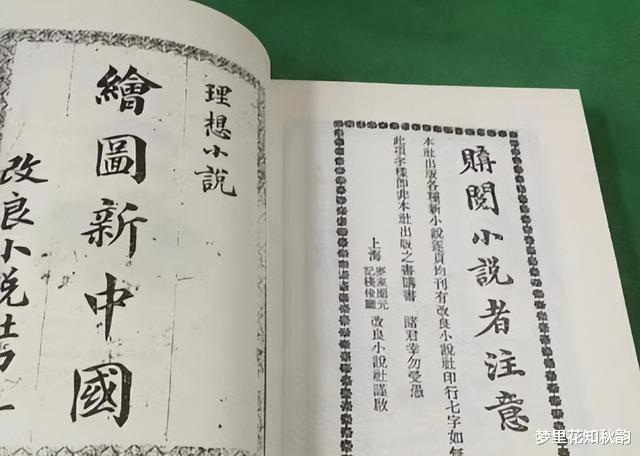 理想小說
繪圖新中國
改良小說社
購閱小說者注意
本社出版各種新小說逐頁均刊有改良小說社印行七字如無
此項字樣卽非本社出版之書購書 諸君幸勿受愚
上海 麥家圈元記棧後廳 改良小說社謹啟
梦里花知秋韵